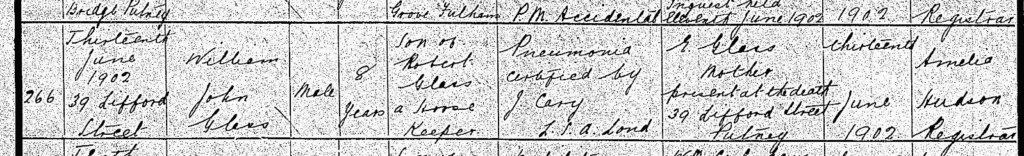 Bridge Putney
Grove Fulham
P.M. Accidental
Inquest held
eleventh June 1902
1902
Registrar
266
Thirteenth
June
1902
39 Lifford
Street
William
John
Glass
Male
8
Years
Son of
Robert
Glass
a Horse
Keeper
Pneumonia
certified by
J. Cary
L.S.A. Lond
E Glass
Mother
present at the death
39 Lifford Street
Putney
Thirteenth
June
1902
Amelia
Hudson
Registrar